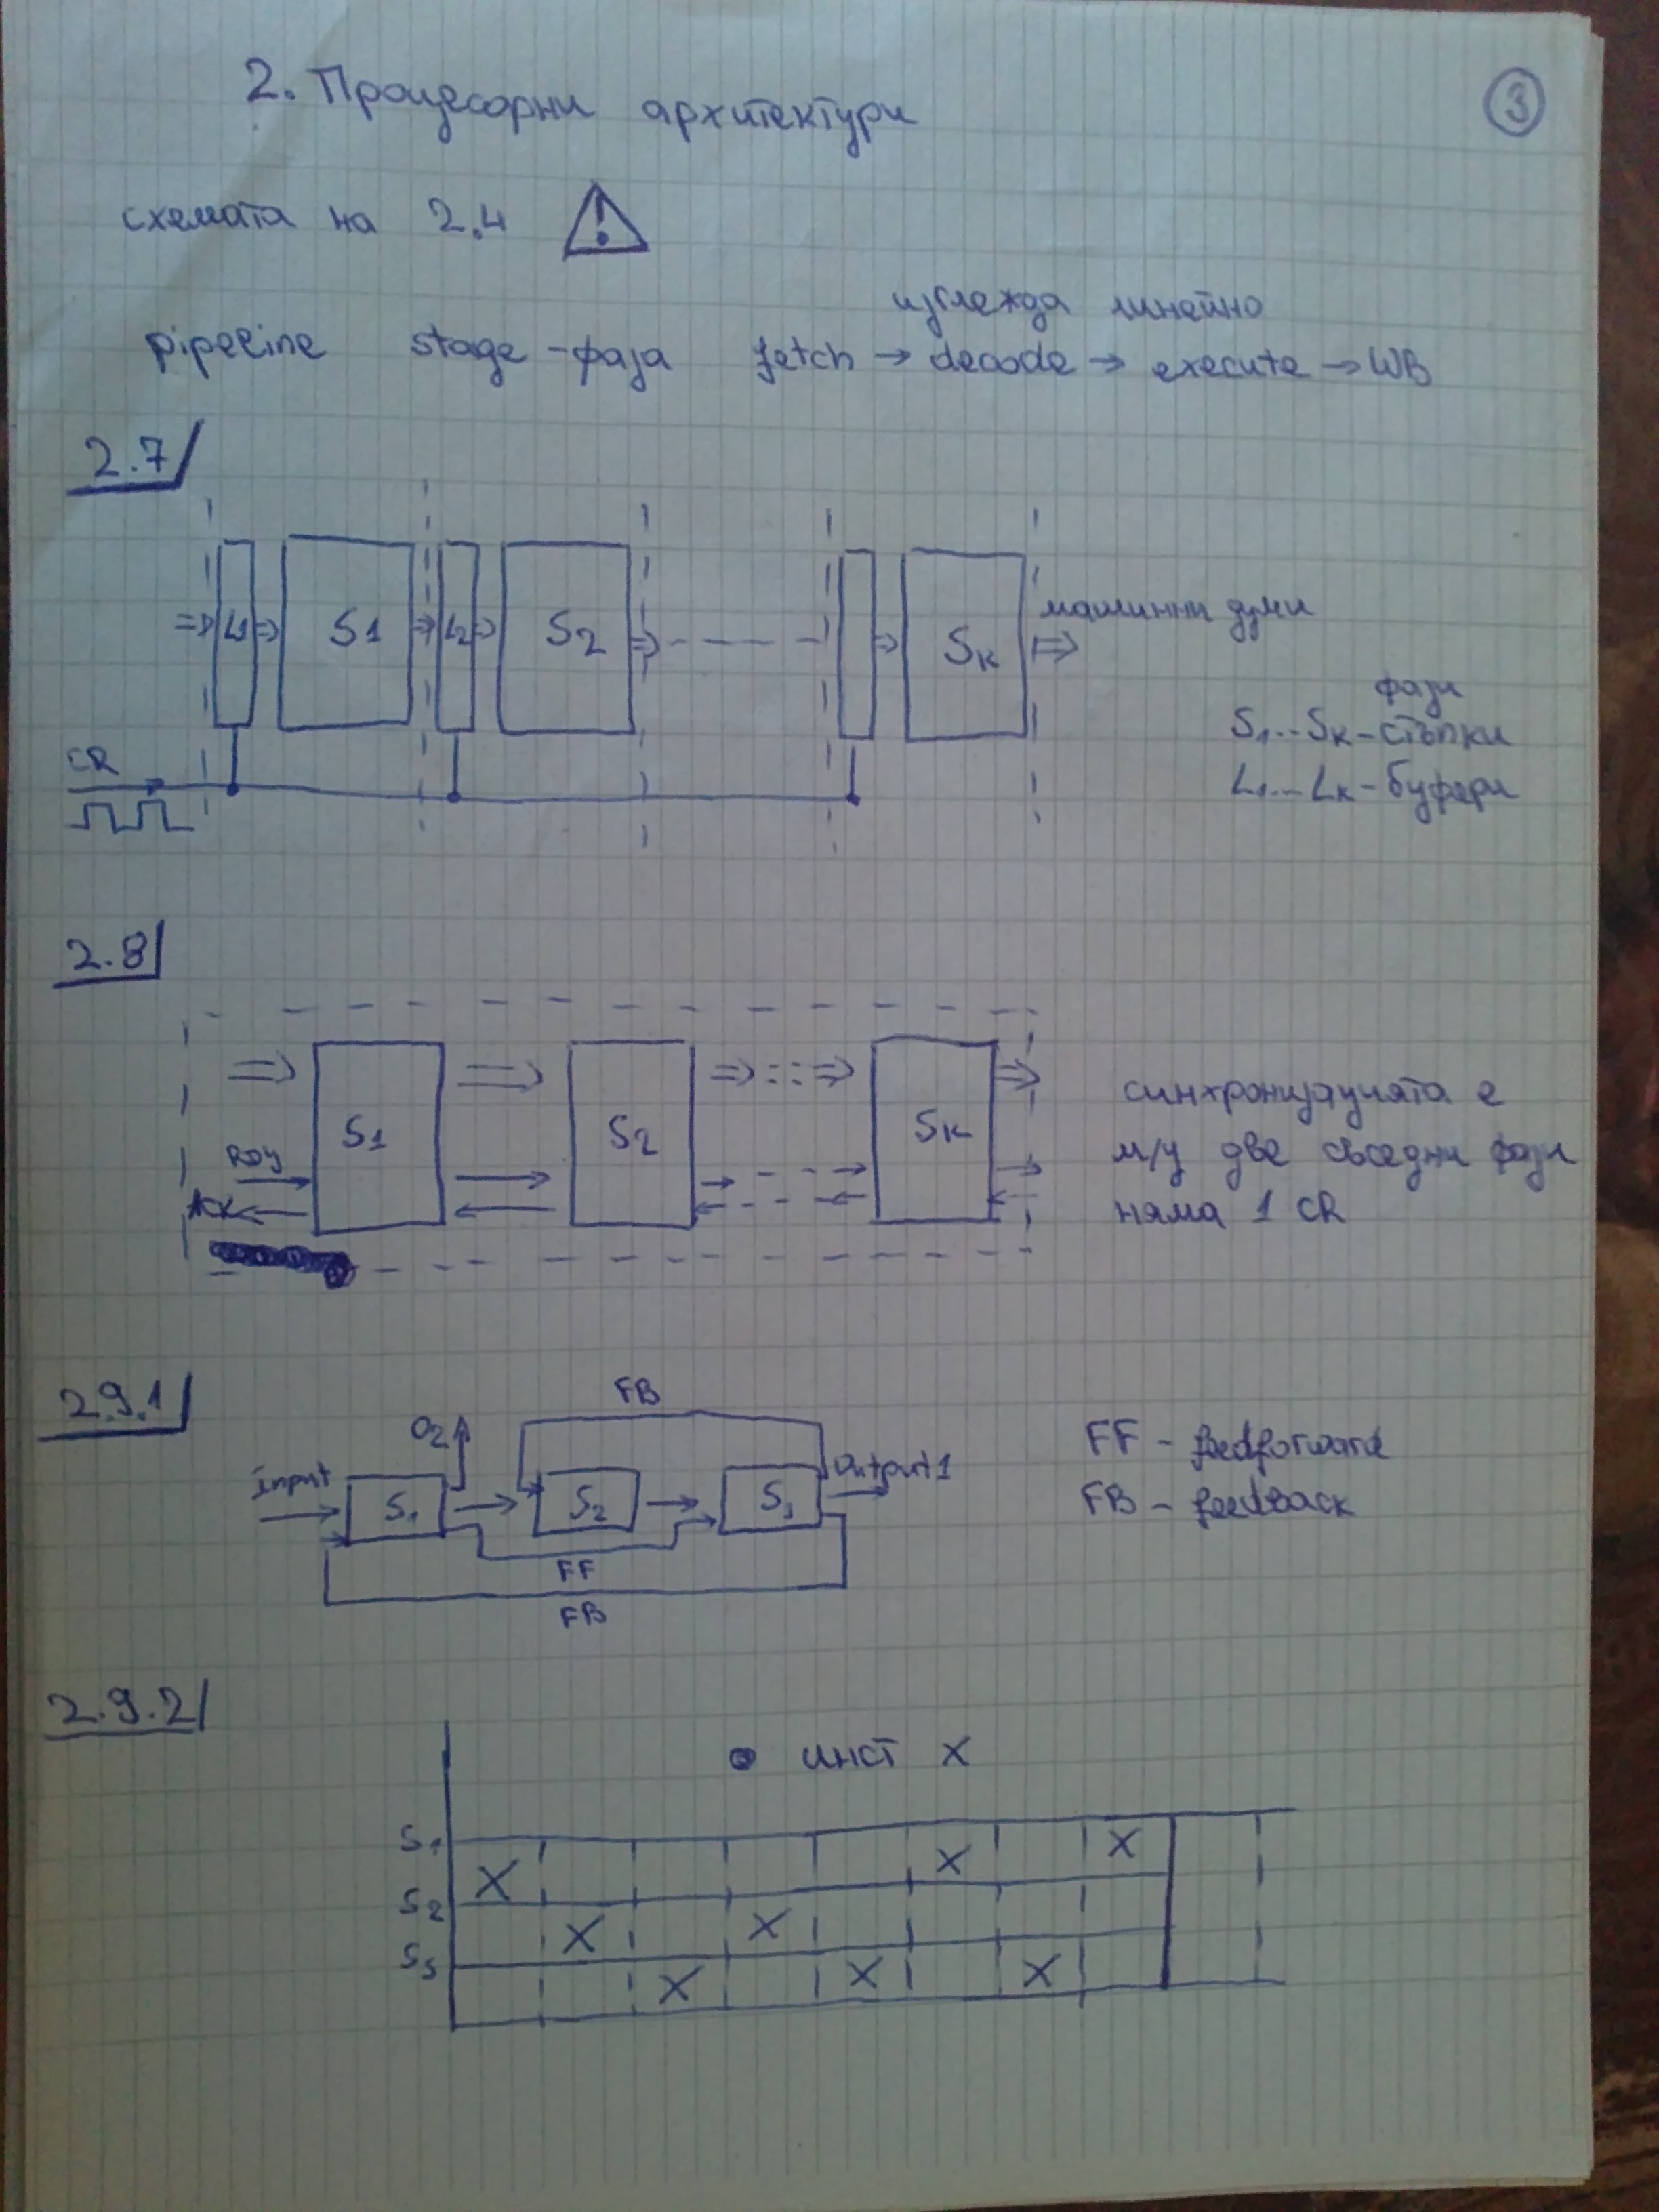 2. Процесорни архитектури
3
схемата на 2.4 !
изглежда линейно
pipeline stage - фаза fetch → decode → execute → WB
2.7
L1 S1 L2 S2 Sk
машинни думи
фази
S1...Sk - стъпки
L1...Lk - буфери
CR
2.8
S1 S2 Sk
RDY
ACK
синхронизацията е
м/у две съседни фази
няма 1 CR
2.9.1
FB
O2
Input S1 S2 S3 Output1
FF
FB
FF - feedforward
FB - feedback
2.9.2
инст X
S1 X X X
S2 X X
S3 X X X